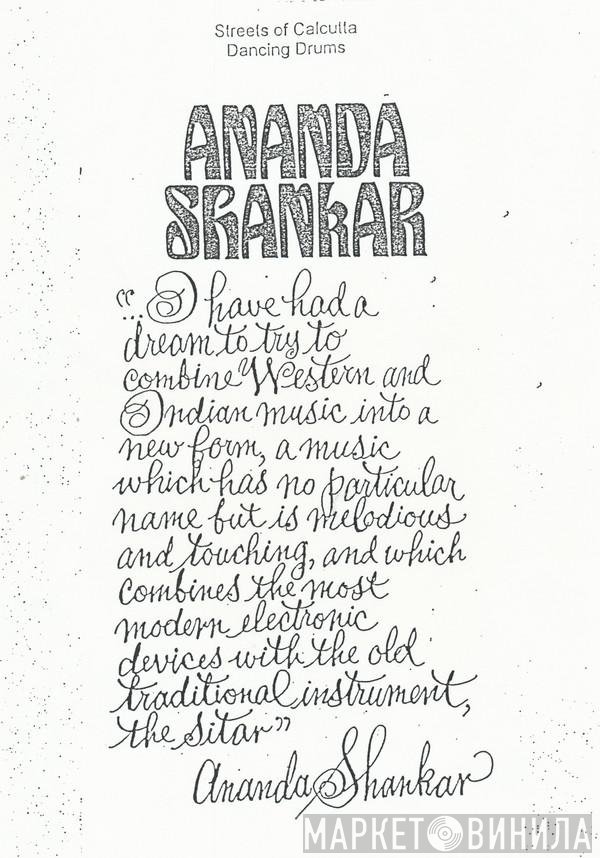 Streets of Calcutta
Dancing Drums
ANANDA
SHANKAR
"... I have had a
dream to try to
combine Western and
Indian music into a
new form, a music
which has no particular
name but is melodious
and touching, and which
combines the most
modern electronic
devices with the old
traditional instrument,
the sitar"
Ananda Shankar
МАРКЕТ ВИНИЛА